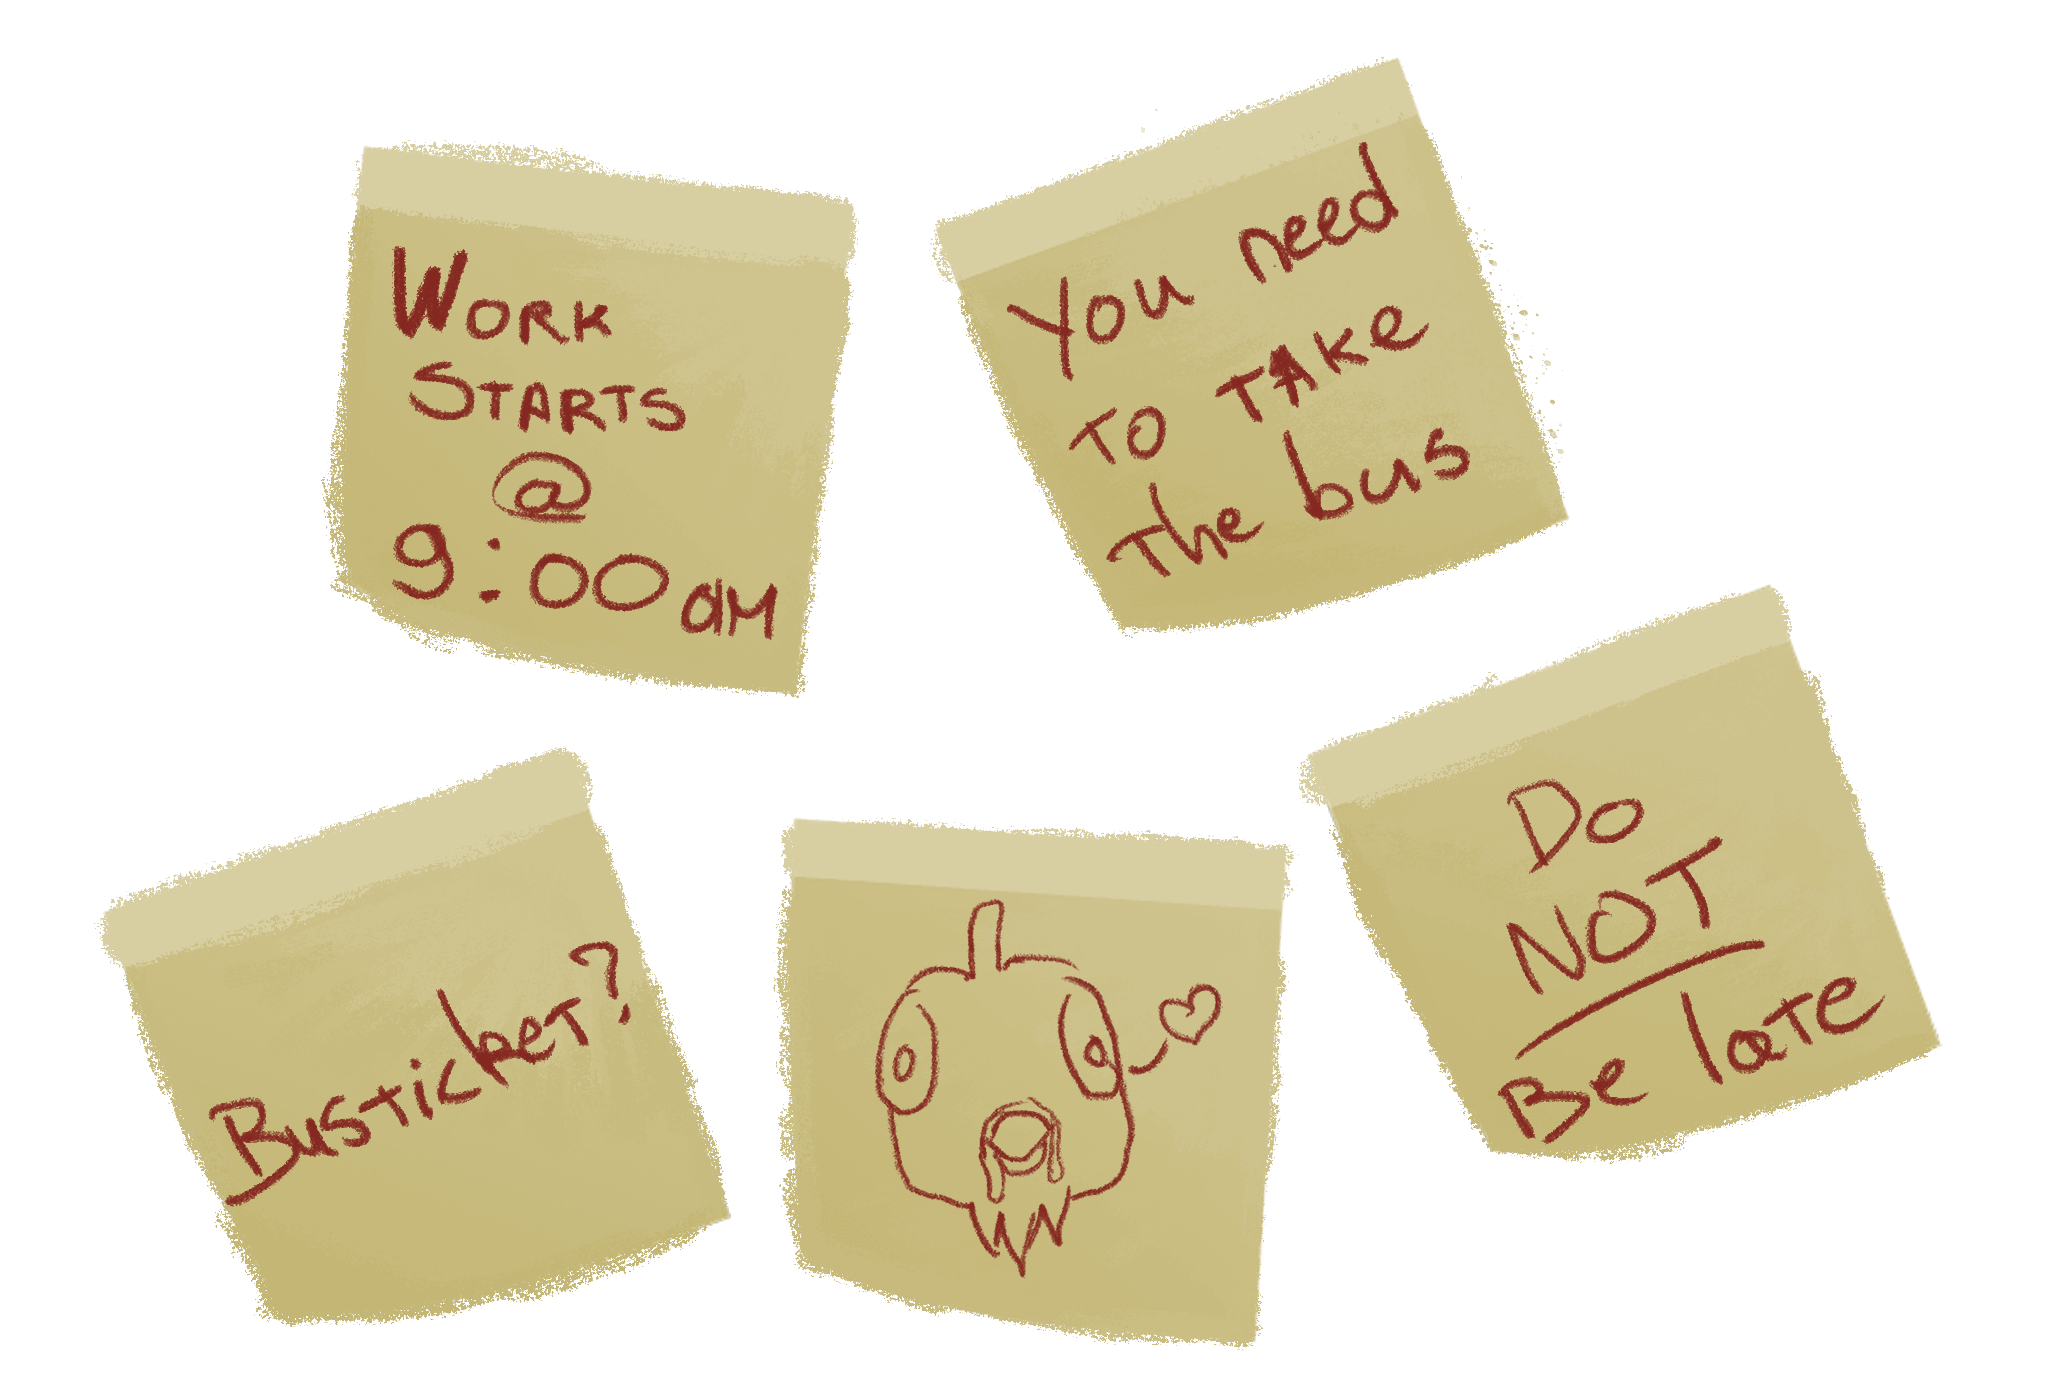 Work
Starts
@
9:00 am
You need
To Take
The bus
Busticket?
Do
NOT
Be late